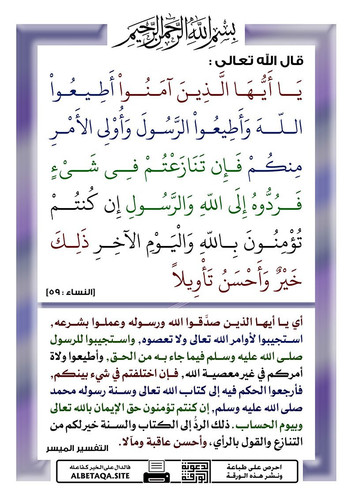 بِسْمِ اللَّهِ الرَّحْمَنِ الرَّحِيمِ
قال الله تعالى :
يَا أَيُّهَا الَّذِينَ آمَنُواْ أَطِيعُواْ
اللَّهَ وَأَطِيعُواْ الرَّسُولَ وَأُوْلِي الأَمْرِ
مِنكُمْ فَإِن تَنَازَعْتُمْ فِي شَيْءٍ
فَرُدُّوهُ إِلَى اللَّهِ وَالرَّسُولِ إِن كُنتُمْ
تُؤْمِنُونَ بِاللَّهِ وَالْيَوْمِ الآخِرِ ذَلِكَ
خَيْرٌ وَأَحْسَنُ تَأْوِيلاً
[النساء : ٥٩]
أي يا أيها الذين صدَّقوا الله ورسوله وعملوا بشرعه,
استجيبوا لأوامر الله تعالى ولا تعصوه, واستجيبوا للرسول
صلى الله عليه وسلم فيما جاء به من الحق, وأطيعوا ولاة
أمركم في غير معصية الله, فإن اختلفتم في شيء بينكم,
فأرجعوا الحكم فيه إلى كتاب الله تعالى وسنة رسوله محمد
صلى الله عليه وسلم, إن كنتم تؤمنون حق الإيمان بالله تعالى
وبيوم الحساب. ذلك الردُّ إلى الكتاب والسنة خير لكم من
التنازع والقول بالرأي, وأحسن عاقبة ومآلا.
التفسير الميسر
احرص على طباعة
ونشر هذه الورقة
فالدال على الخير كفاعله
ALBETAQA.SITE